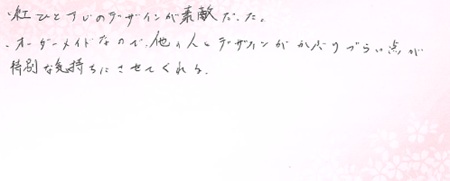 ・紅ひとすじのデザインが素敵だった。
・オーダーメイドなので、他の人とデザインがかぶりづらい点が
特別な気持ちにさせてくれる。